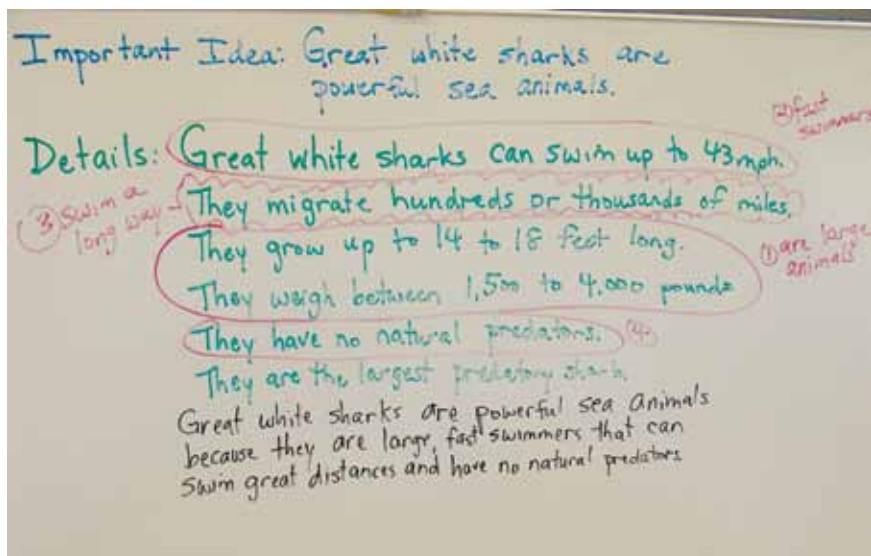 Important Idea: Great white sharks are
powerful sea animals.
② fast
swimmers
Details: Great white sharks can swim up to 43 mph.
③ swim a
long way
They migrate hundreds or thousands of miles.
They grow up to 14 to 18 feet long.
① are large
animals
They weigh between 1,500 to 4,000 pounds
They have no natural predators. ④
They are the largest predatory shark.
Great white sharks are powerful sea animals
because they are large, fast swimmers that can
swim great distances and have no natural predators